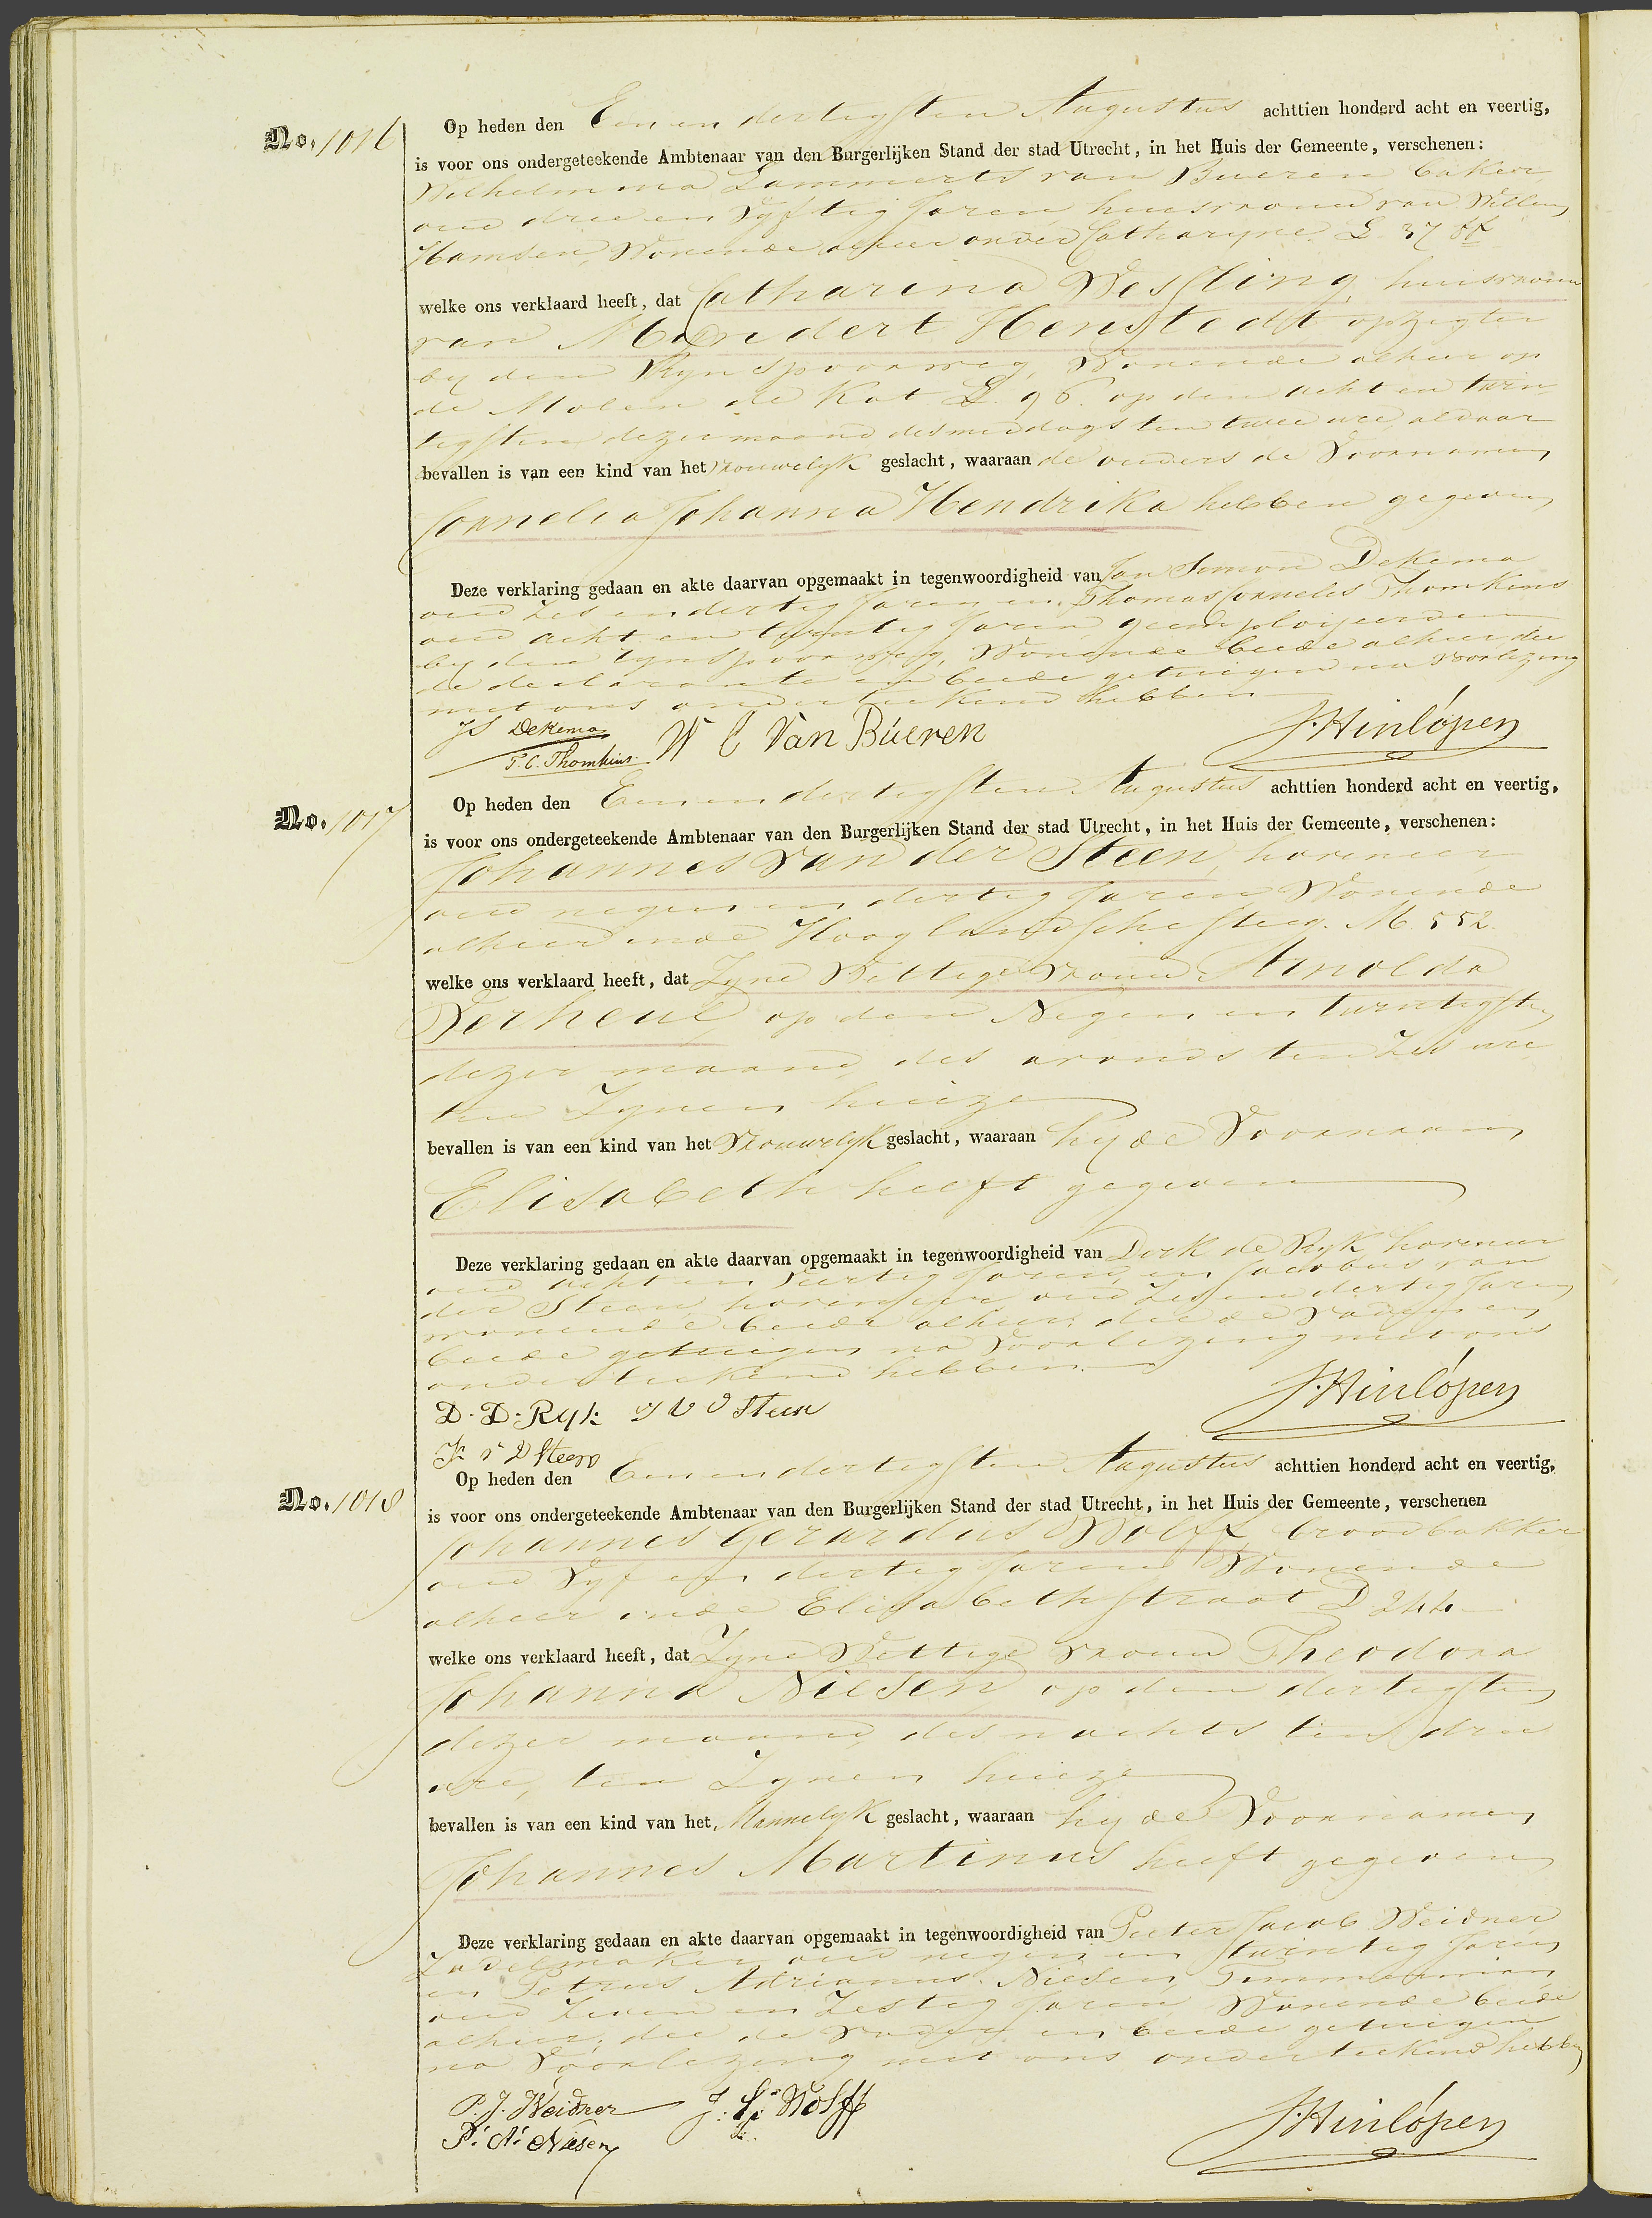 No. 1016
Op heden den Een en dertigsten Augustus achttien honderd acht en veertig,
is voor ons ondergeteekende Ambtenaar van den Burgerlijken Stand der stad Utrecht, in het Huis der Gemeente, verschenen:
Wilhelmina Lammerts van Bueren baker
oud drie en vyftig Jaren huisvrouw van Willem
Hamsen, Wonende alhier onder Catharyne L. 37
welke ons verklaard heeft, dat Catharina Wesseling huisvrouw
van Meindert Henstedt opzigter
by den Rynspoorweg, Wonende alhier op
de Molen de Kat L. 96. op den acht en twin
tigsten dezer maand des middags ten twee ure, aldaar
bevallen is van een kind van het vrouwelyk geslacht, waaraan de ouders de Voornamen
Cornelia Johanna Hendrika hebben gegeven
Deze verklaring gedaan en akte daarvan opgemaakt in tegenwoordigheid van Jan Simon Dekema
oud Zes en dertig Jaren en Thomas Cornelis Thomkins
oud acht en twintig Jaren geemployeerden
by den Rynspoorweg, Wonende beide alhier die
de declarante en beide getuigen na voorlezing
met ons onderteekend hebben
JS Dekema
T. C. Thomkins W L Van Büeren J. Hinlópen
No. 1017
Op heden den Een en dertigsten Augustus achttien honderd acht en veertig,
is voor ons ondergeteekende Ambtenaar van den Burgerlijken Stand der stad Utrecht, in het Huis der Gemeente, verschenen:
Johannes van der Steen, hovenier
oud negen en dertig Jaren Wonende
alhier in de Hooglandsche steeg. M. 552.
welke ons verklaard heeft, dat Zyne Wettige vrouw Arnolda
Verheul op den Negen en twintigsten
dezer maand, des avonds ten Zes ure
ten Zynen huize
bevallen is van een kind van het Vrouwelyk geslacht, waaraan hy de Voornaam
Elisabeth heeft gegeven
Deze verklaring gedaan en akte daarvan opgemaakt in tegenwoordigheid van Dirk de Ryk, hovenier
oud acht en veertig Jaren, en Jacobus van
der Steen hovenier oud Zes en dertig Jaren
wonende beide alhier die de Vader en
beide getuigen na Voorlezing met ons
onderteekend hebben.
D. D. Ryk J V D Steen J. Hinlópen
J. v D Steen
No. 1018
Op heden den Een en dertigsten Augustus achttien honderd acht en veertig,
is voor ons ondergeteekende Ambtenaar van den Burgerlijken Stand der stad Utrecht, in het Huis der Gemeente, verschenen
Johannes Gerardus Wolff broodbakker
oud Vyf en dertig Jaren Wonende
alhier in de Elisabethstraat D 244
welke ons verklaard heeft, dat Zyne Wettige vrouw Theodora
Johanna Niesen op den dertigsten
dezer maand des nachts ten drie
ure, ten Zynen huize
bevallen is van een kind van het Mannelyk geslacht, waaraan hy de Voornamen
Johannes Martinus heeft gegeven
Deze verklaring gedaan en akte daarvan opgemaakt in tegenwoordigheid van Pieter Jacob Weidner
Zadelmaker oud negen en twintig Jaren
en Petrus Adrianus Niesen, Timmerman
oud Zeven en Zestig Jaren Wonende beide
alhier, die de Vader en beide getuigen
na Voorlezing met ons onderteekend hebben
P. J. Weidner J: G: Wolff J. Hinlópen
P: A: Niesen